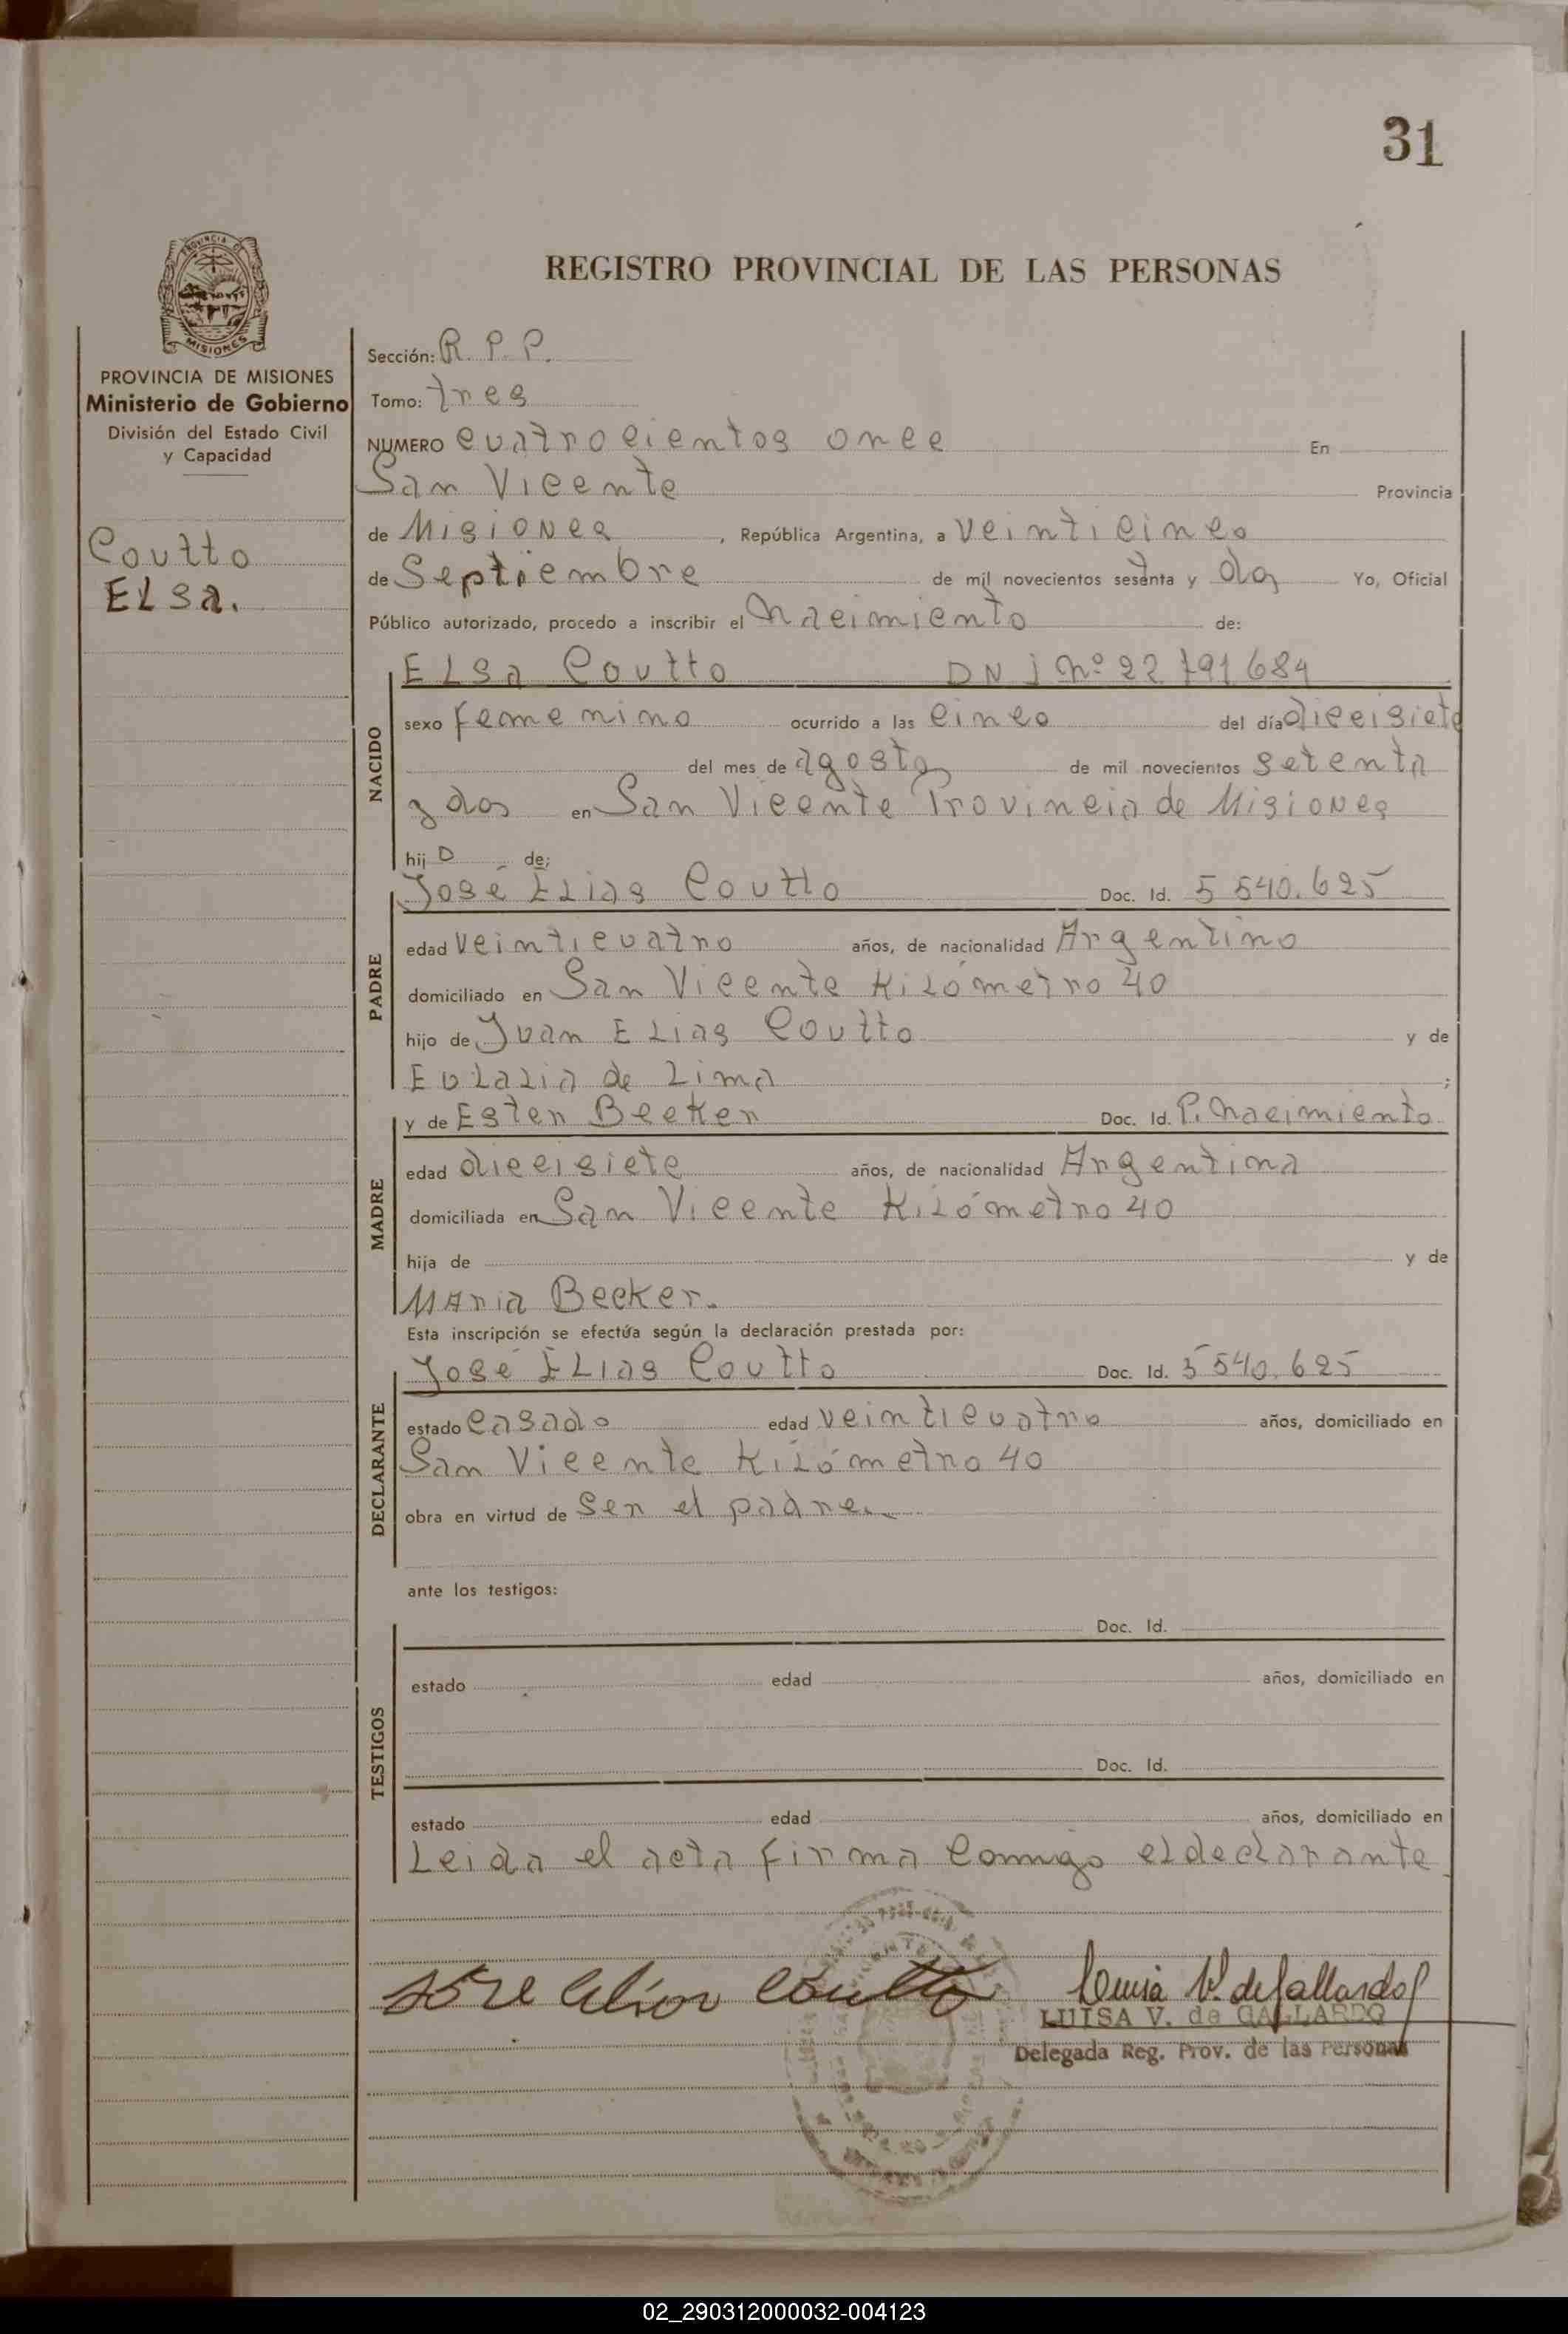 31
PROVINCIA DE
MISIONES
REGISTRO PROVINCIAL DE LAS PERSONAS
PROVINCIA DE MISIONES
Ministerio de Gobierno
División del Estado Civil
y Capacidad
Coutto
ELSa.
Sección: R. P. P.
Tomo: tres
NUMERO cuatrocientos once En
San Vicente Provincia
de Misiones, República Argentina, a veinticinco
de Septiembre de mil novecientos setenta y dos Yo, Oficial
Público autorizado, procedo a inscribir el nacimiento de:
NACIDO
ELsa Coutto DNI nº 22.791684
sexo femenino ocurrido a las cinco del día diecisiete
del mes de agosto de mil novecientos setenta
y dos en San Vicente Provincia de Misiones
hij a de:
PADRE
José ELias Coutto Doc. Id. 5 540.625
edad veinticuatro años, de nacionalidad Argentino
domiciliado en San Vicente Kilómetro 40
hijo de Juan ELias Coutto y de
EulaLia de Lima ;
MADRE
y de Ester Becker Doc. Id. P. nacimiento
edad diecisiete años, de nacionalidad Argentina
domiciliada en San Vicente Kilómetro 40
hija de y de
Maria Becker.
Esta inscripción se efectúa según la declaración prestada por:
DECLARANTE
José ELias Coutto Doc. Id. 5 540.625
estado casado edad veinticuatro años, domiciliado en
San Vicente Kilómetro 40
obra en virtud de ser el padre
ante los testigos:
TESTIGOS
Doc. Id.
estado edad años, domiciliado en
Doc. Id.
estado edad años, domiciliado en
Leida el acta firma conmigo el declarante
José Elias Coutto
Luisa V. de Gallardo
LUISA V. de GALLARDO
Delegada Reg. Prov. de las Personas
02_290312000032-004123